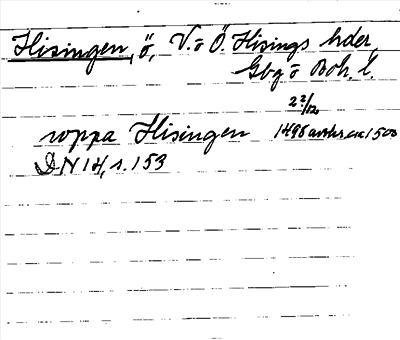 Hisingen, ö, V. o Ö. Hisings hder,
Gbg o Boh. l.
22/12
uppa Hisingen 1498 avskr. ca 1500
DN 14, s. 153